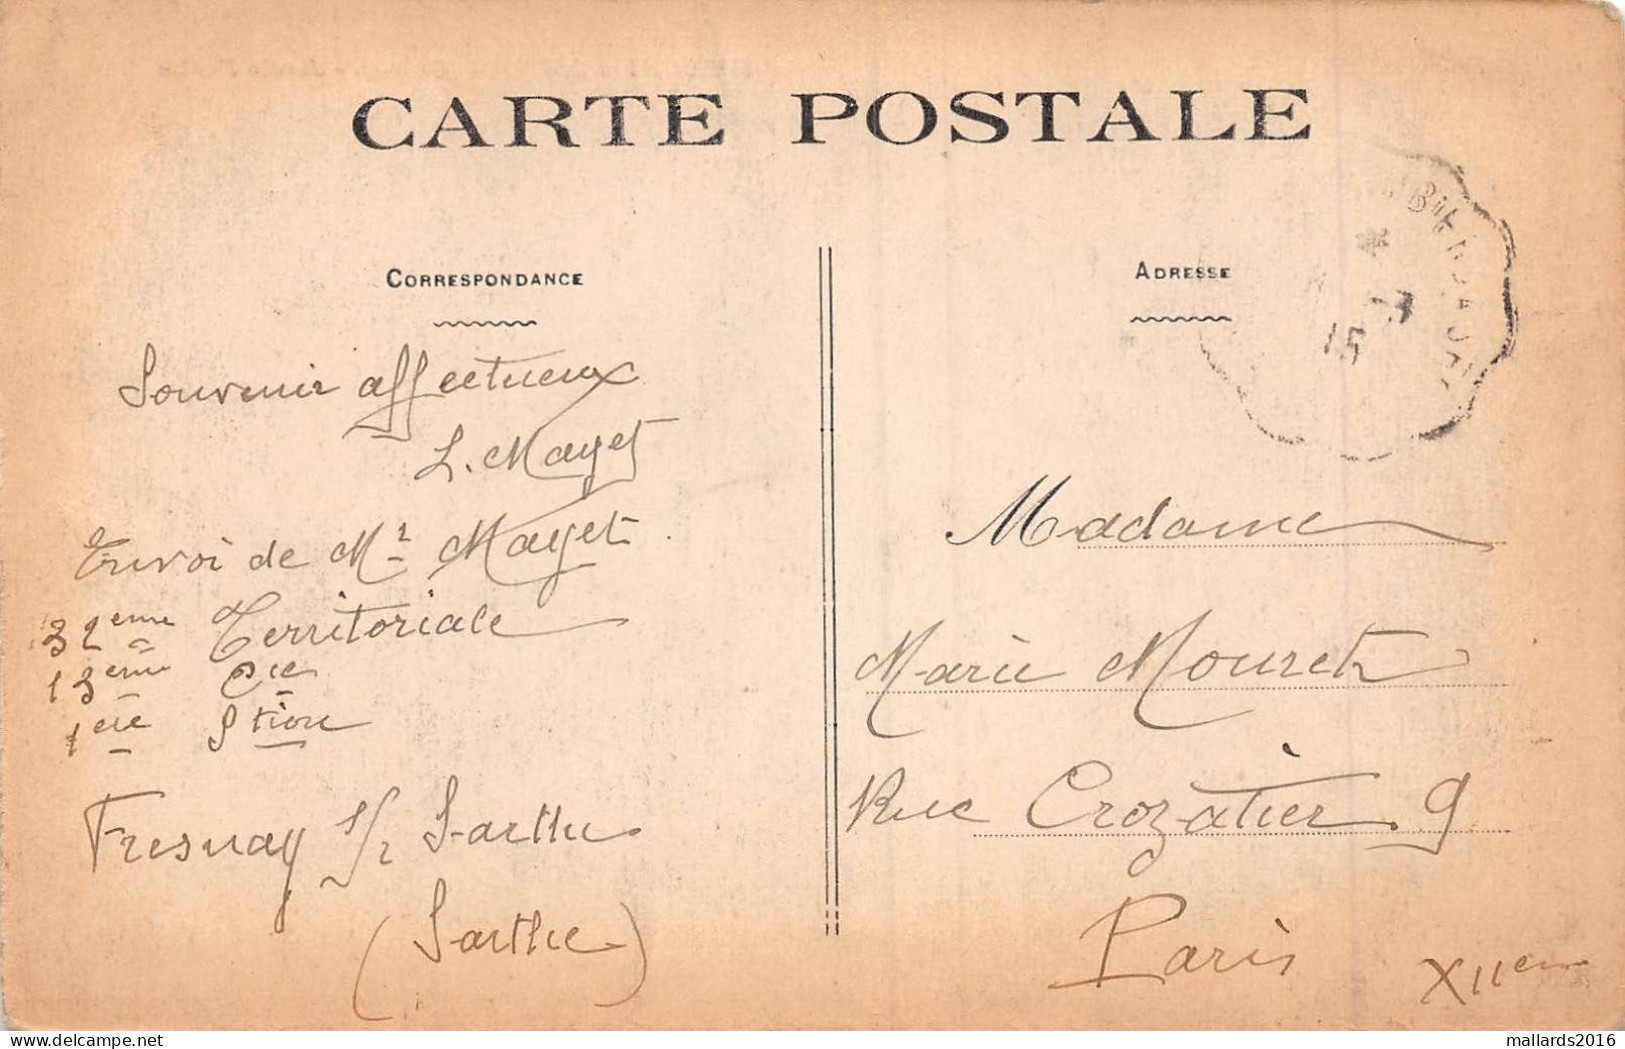 CARTE POSTALE
CORRESPONDANCE
Souvenir affectueux
L. Mayet
Envoi de Mr Mayet.
32eme Territoriale
13eme Cie
1ere Stion
Fresnay s/ Sarthe
(Sarthe)
ADRESSE
15
Madame
Marie Mouret
Rue Crozatier 9
Paris XIIem
mallards2016